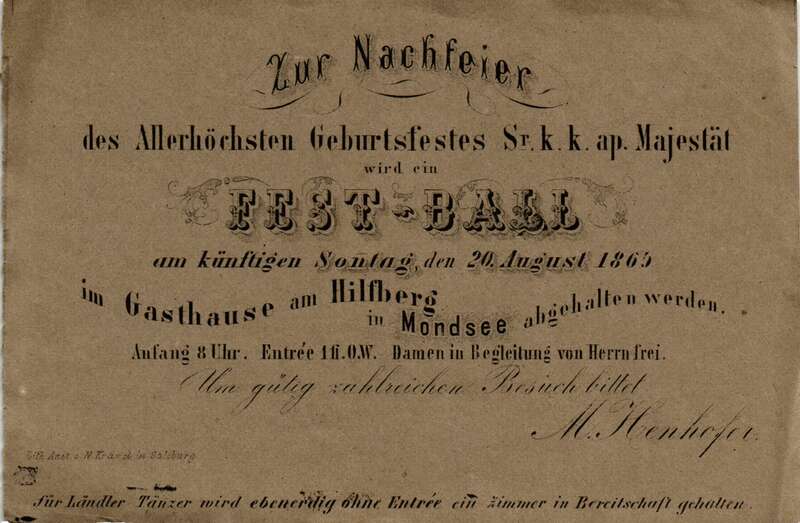 Zur Nachfeier
des Allerhöchsten Geburtsfestes Sr. k. k. ap. Majestät
wird ein
FEST-BALL
am künftigen Sontag, den 20. August 1865
im Gasthause am Hilfberg
in Mondsee abgehalten werden.
Anfang 8 Uhr. Entrée 1 fl. O.W. Damen in Begleitung von Herrn frei.
Um gütig zahlreichen Besuch bittet
M. Henhofer.
Lith. Anst. v. N. Kránd in Salzburg
für Ländler Tänzer wird ebenerdig ohne Entrée ein zimmer in Bereitschaft gehalten.